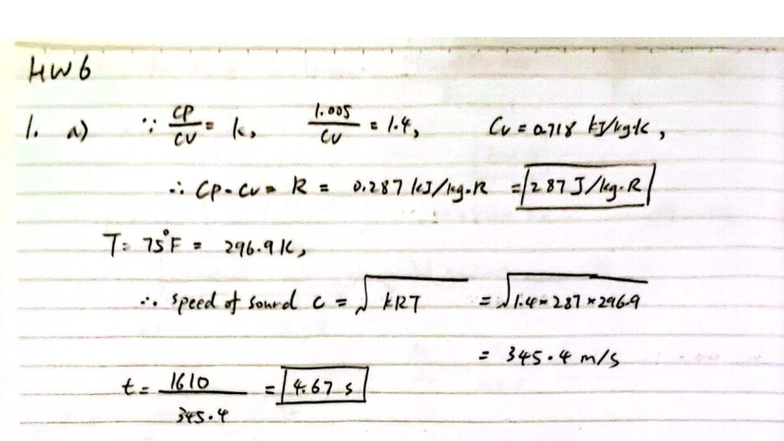 HW6
1. a) ∵ CP/CV = k, 1.005/CV = 1.4, CV = 0.718 kJ/kg·K,
∴ CP - CV = R = 0.287 kJ/kg·R = 287 J/kg·R
T = 75°F = 296.9 K,
∴ speed of sound c = √kRT = √1.4×287×296.9
= 345.4 m/s
t = 1610/345.4 = 4.67 s